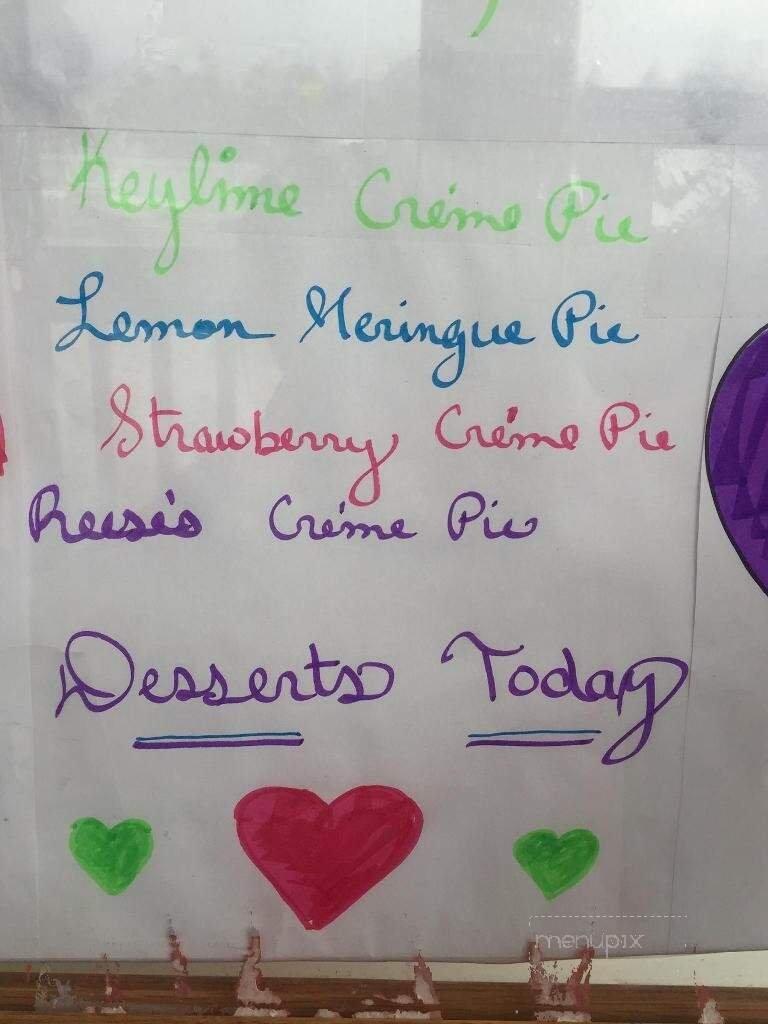 Keylime Créme Pie
Lemon Meringue Pie
Strawberry Créme Pie
Reese's Créme Pie
Desserts Today
menupix